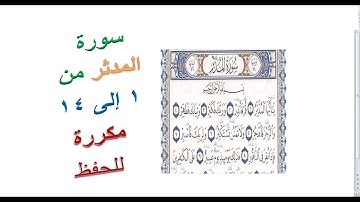 سورة
المدثر من
١ إلى ١٤
مكررة
للحفظ
سورة المدثر
بسم الله الرحمن الرحيم
يأيها المدثر ١ قم فأنذر ٢ وربك فكبر ٣ وثيابك فطهر ٤
والرجز فاهجر ٥ ولا تمنن تستكثر ٦ ولربك فاصبر ٧
فإذا نقر في الناقور ٨ فذلك يومئذ يوم عسير ٩ على الكفرين